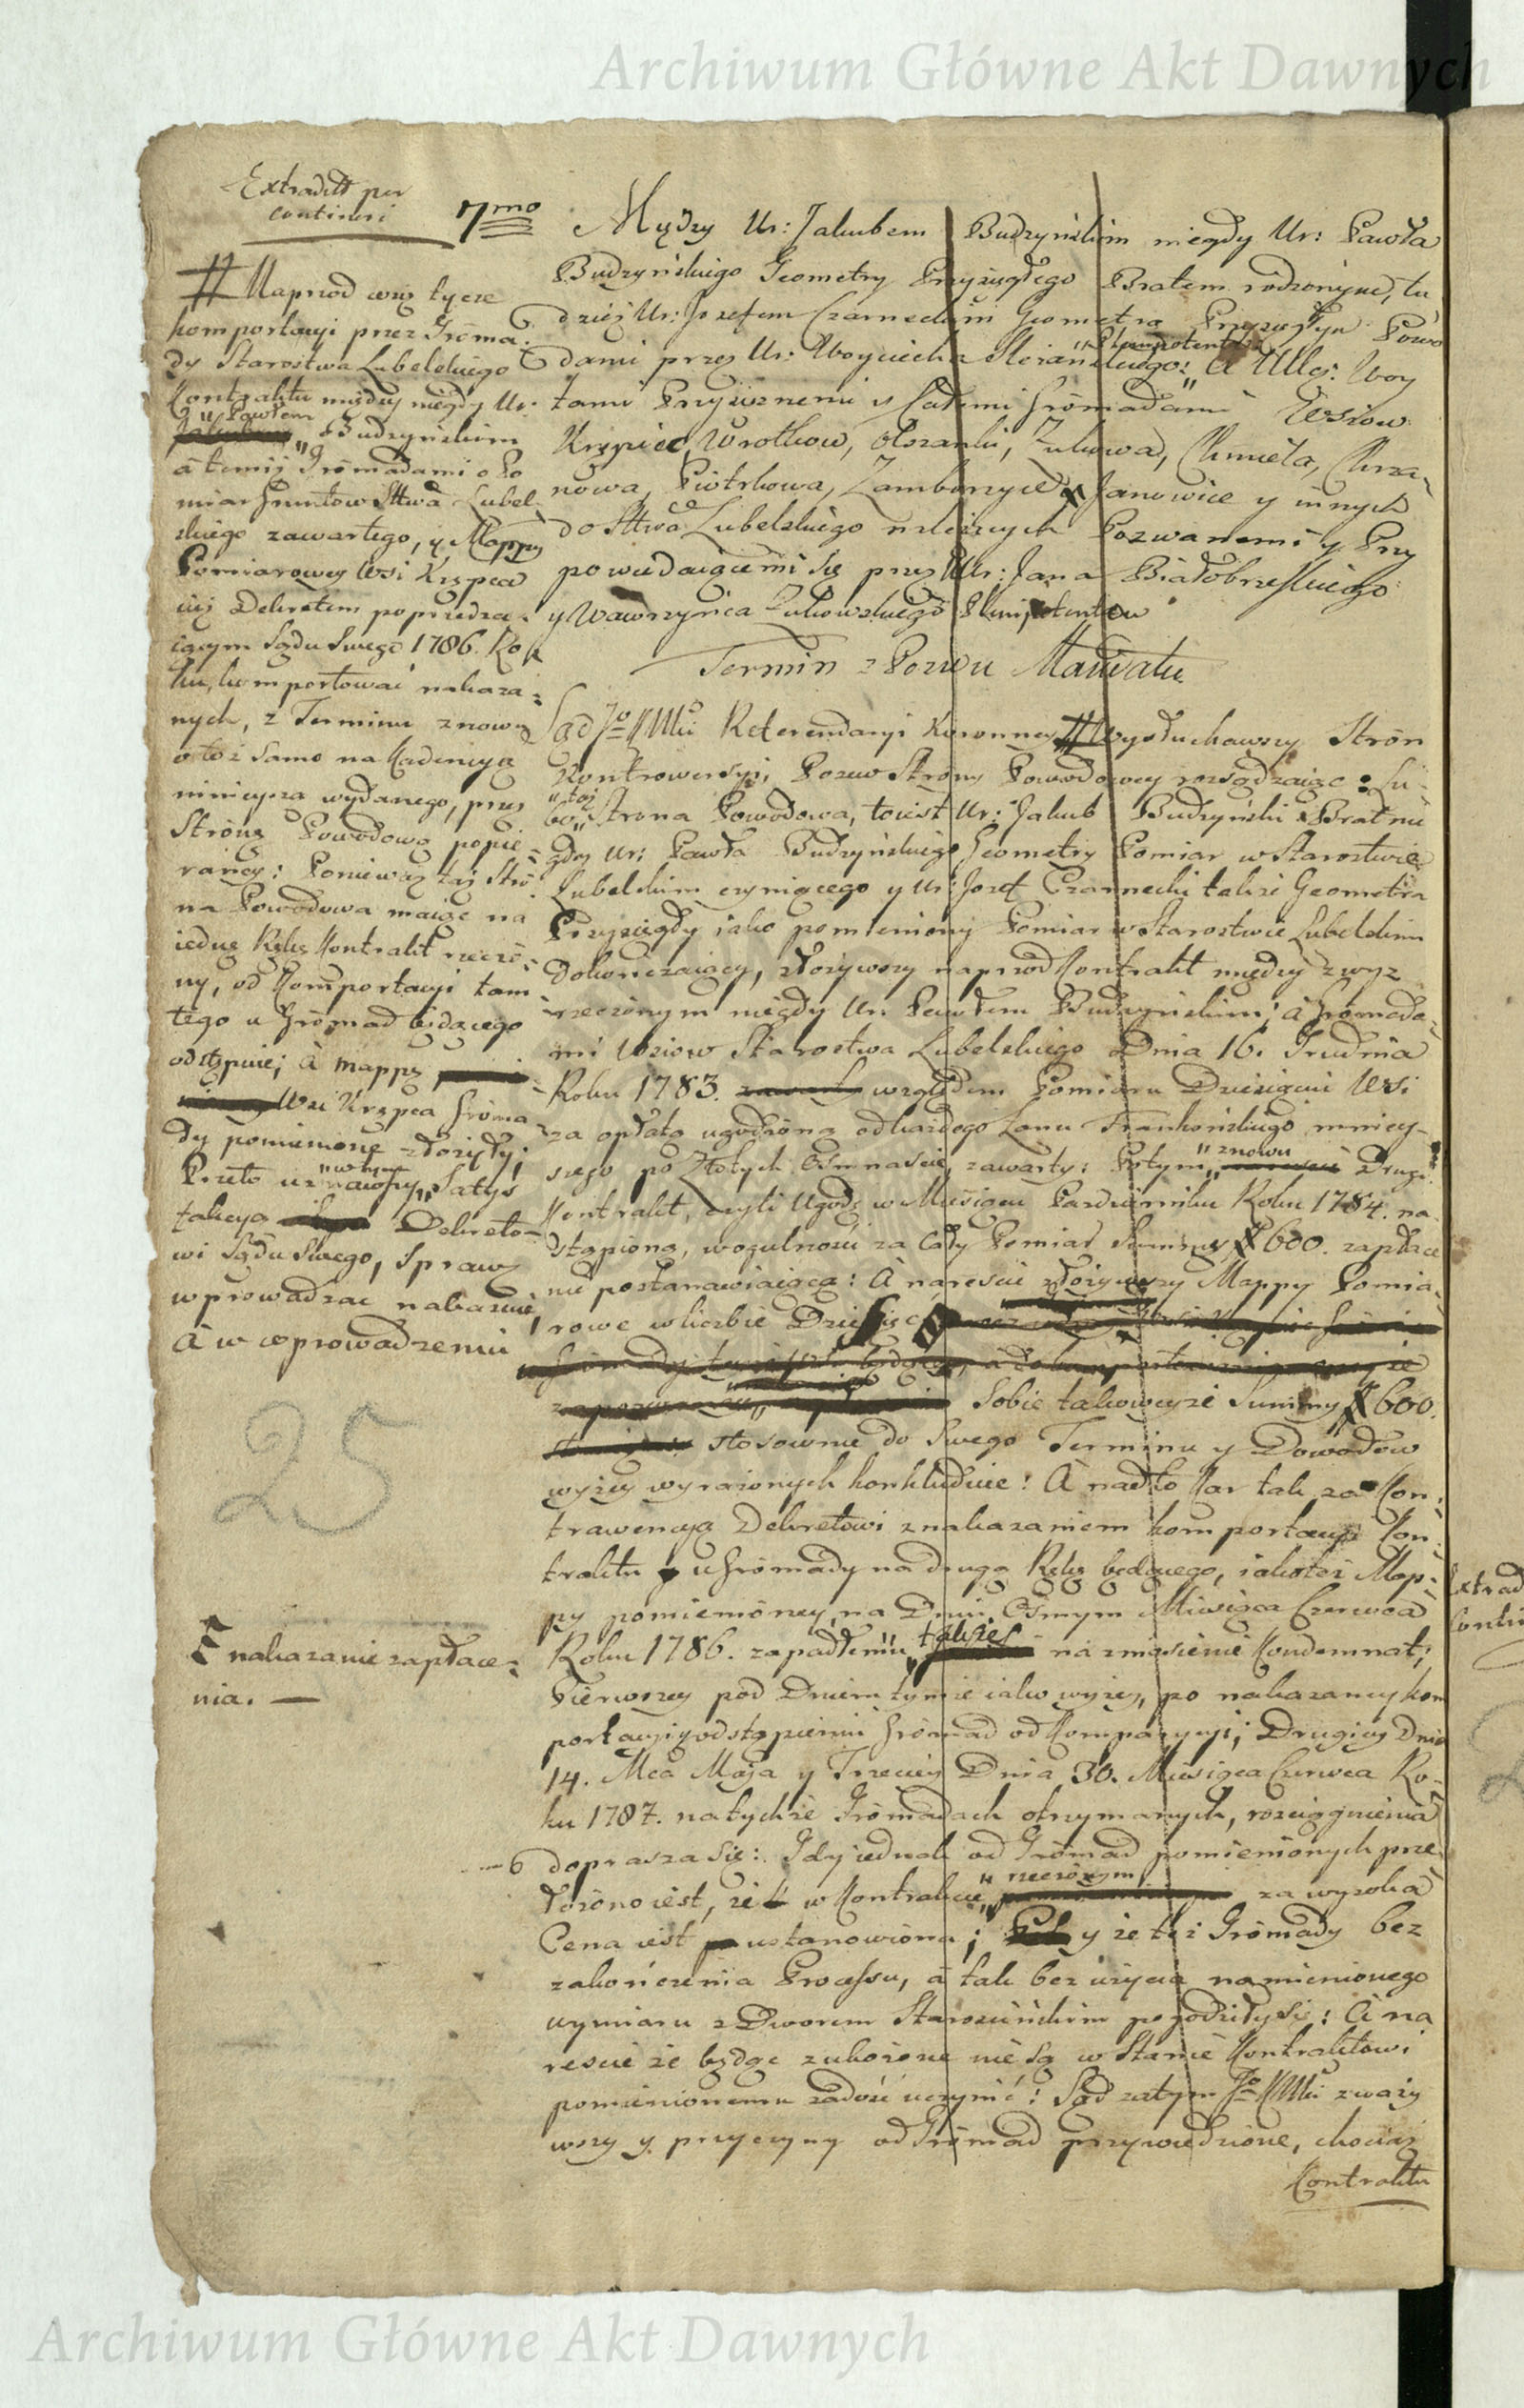 Archiwum Główne Akt Dawnych
Extradit per
continuri
# Naprzod wzg tycze
komportacyi przez Groma:
dy Starostwa Lubelskiego
Kontraktu między niegdy Ur:
Pawłem
Budzyńskim
a temiż Gromadami o Po
miar Gruntow Sttwa Lubel
skiego zawartego, y Mappy
Pomiarowey Wsi Krzpca
iuż Dekretem poprzedza:
iącym Sądu Swego 1786. Ro
ku, komportować nakaza:
nych, z Terminu znowu
o toż samo na Kadencyą
ninieysza wydanego, przez
Stronę Powodową popie
raney: Ponieważ taż Stro
na Powodowa maiąc na
iedną Rękę Kontrakt rzeczo
ny, od Komportacyi tam
tego u Gromad będącego
odstępuie; a mappę
Wsi Krzpca Groma
dy pomienione złożyły;
Przeto uznawszy w tym Satys
fakcyą Dekreto
wi Sądu Swego, Sprawę
wprowadzac nakazuie,
A w wprowadzeniu
25
nakazanie zapłace:
nia. —
7mo Między Ur: Jakubem Budzyńskim niegdy Ur: Pawła
Budzyńskiego Geometry Przysięgłego Bratem rodzonym, tu
dzież Ur: Jozefem Czarneckim Geometrą Przysięgłym Powo
dami przez Ur: Woyciecha Plenipotenta A UUcz: Woy
tami Przysiężnemi y Całemi Gromadami Wsiow
Krzpiec, Wrotkow, Abramowic, Zukowa, Chmiela, Chrza:
nowa, Piotrkowa, Zamborzyce, Janowice y innych
do Sttwa Lubelskiego należących Pozwanemi y Przy
powiedaiącemi się przez Ur: Jana Białobrzeskiego
y Wawrzyńca Zukowskiego Plenipotentow
Termin z Pozwu Mandatu
Sąd Jo KMci Referendaryi Koronney # Wysłuchawszy Stron
Kontrowersyi, Pozew Strony Powodowey rozsądzaiąc: Lu:
bo taż Strona Powodowa, toiest Ur: Jakub Budzyński Brat nie
gdy Ur: Pawła Budzyńskiego Geometry Pomiar w Starostwie
Lubelskim czyniącego y Ur: Jozef Czarnecki także Geometra
Przysięgły iako pomieniony Pomiar w Starostwie Lubelskim
dokończaiący, złożywszy naprzod Kontrakt między zwyz
rzeczonym niegdy Ur: Pawłem Budzyńskim; a Gromada:
mi Wsiow Starostwa Lubelskiego Dnia 16. Grudnia
Roku 1783. względem Pomiaru Dziesiąciu Wsi
za opłatą ugodzoną od każdego Łanu Frankońskiego mniey
szego po Złotych Ośmnaście, zawarty: Potym znowu Drugi
Kontrakt, czyli Ugodę w Miesiącu Październiku Roku 1784. na
stąpioną, wogulnosci za Cały Pomiar Summę # 600. zapłace
nie postanawiaiącą: A naresCie złożywszy Mappy Pomia
rowe w liczbie Dziesięc
Sobie takoweyże Summy # 600.
stosownie do Swego Terminu y Dowodow
wyżey wyrażonych konkluduie: A nadto Kar tak za Kon:
trawencyą Dekretowi z nakazaniem komportacyi Kon:
traktu u Gromady na drugą Rękę będącego, iakoteż Map:
py pomienioney, na Dniu Osmym Miesiąca Czerwca
Roku 1786. zapadłemu, także na zniesienie Kondemnat;
Pierwszey pod Dniem tymże iako wyżey, po nakazaney kom
portacyi y odstąpieniu Gromad od Komparycyi; Drugiey Dnia
14. Mca Maja y Trzeciey Dnia 30. Miesiąca Czerwca Ro:
ku 1787. na tychże Gromadach otrzymanych, rozciągnienia
doprasza się: Gdy iednak od Gromad pomienionych prze
łożono iest, że w Kontrakcie rzeczonym za wysoka
Cena iest ustanowiona; y że też Gromady bez
zakończenia Processu, a tak bez użycia namienionego
wymiaru z Dworem Starościńskim pogodziły się: A na
rescie że będąc zubożone nie są w Stanie Kontraktowi
pomienionemu zadość uczynić: Sąd zatym Jo KMci zważy
wszy y przyczyny od Gromad przywiedzione, chociaz
Kontraktu
Archiwum Główne Akt Dawnych